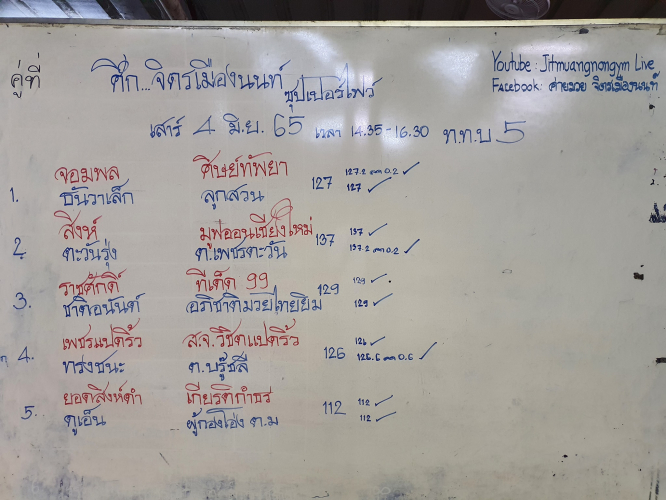 คู่ที่ ศึก...จิตรเมืองนนท์ ซุปเปอร์ไฟว์
Youtube : Jitmuangnongym Live
Facebook: ค่ายมวย จิตรเมืองนนท์
เสาร์ 4 มิ.ย. 65 เวลา 14.35-16.30 ท.ท.บ 5
จอมพล ศิษย์ทัพยา 127 127.2 ลด 0.2 ✓
1. ธันวาเล็ก ลูกสวน 127 ✓
สิงห์ มูฟออนเชียงใหม่ 137 137 ✓
2 ตะวันรุ่ง ต.เพชรตะวัน 137.2 ลด 0.2 ✓
ราชศักดิ์ ทีเด็ด 99 129 129 ✓
3. ชาติอนันต์ อภิชาติมวยไทยยิม 129 ✓
เพชรแปดริ้ว ส.จ.วิชิตแปดริ้ว 126 ✓
4. ทรงชนะ ต.บรู๊ซลี 126 126.6 ลด 0.6 ✓
ยอดสิงห์ดำ เกียรติกำธร 112 112 ✓
5. ดูเอ็น ผู้กองโฮ่ง ต.ม 112 ✓